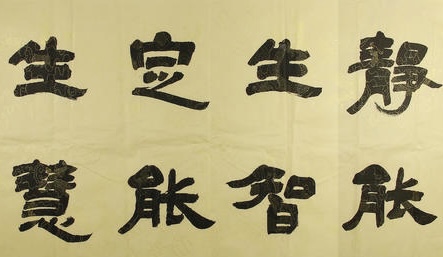 静能
生智
定能
生慧